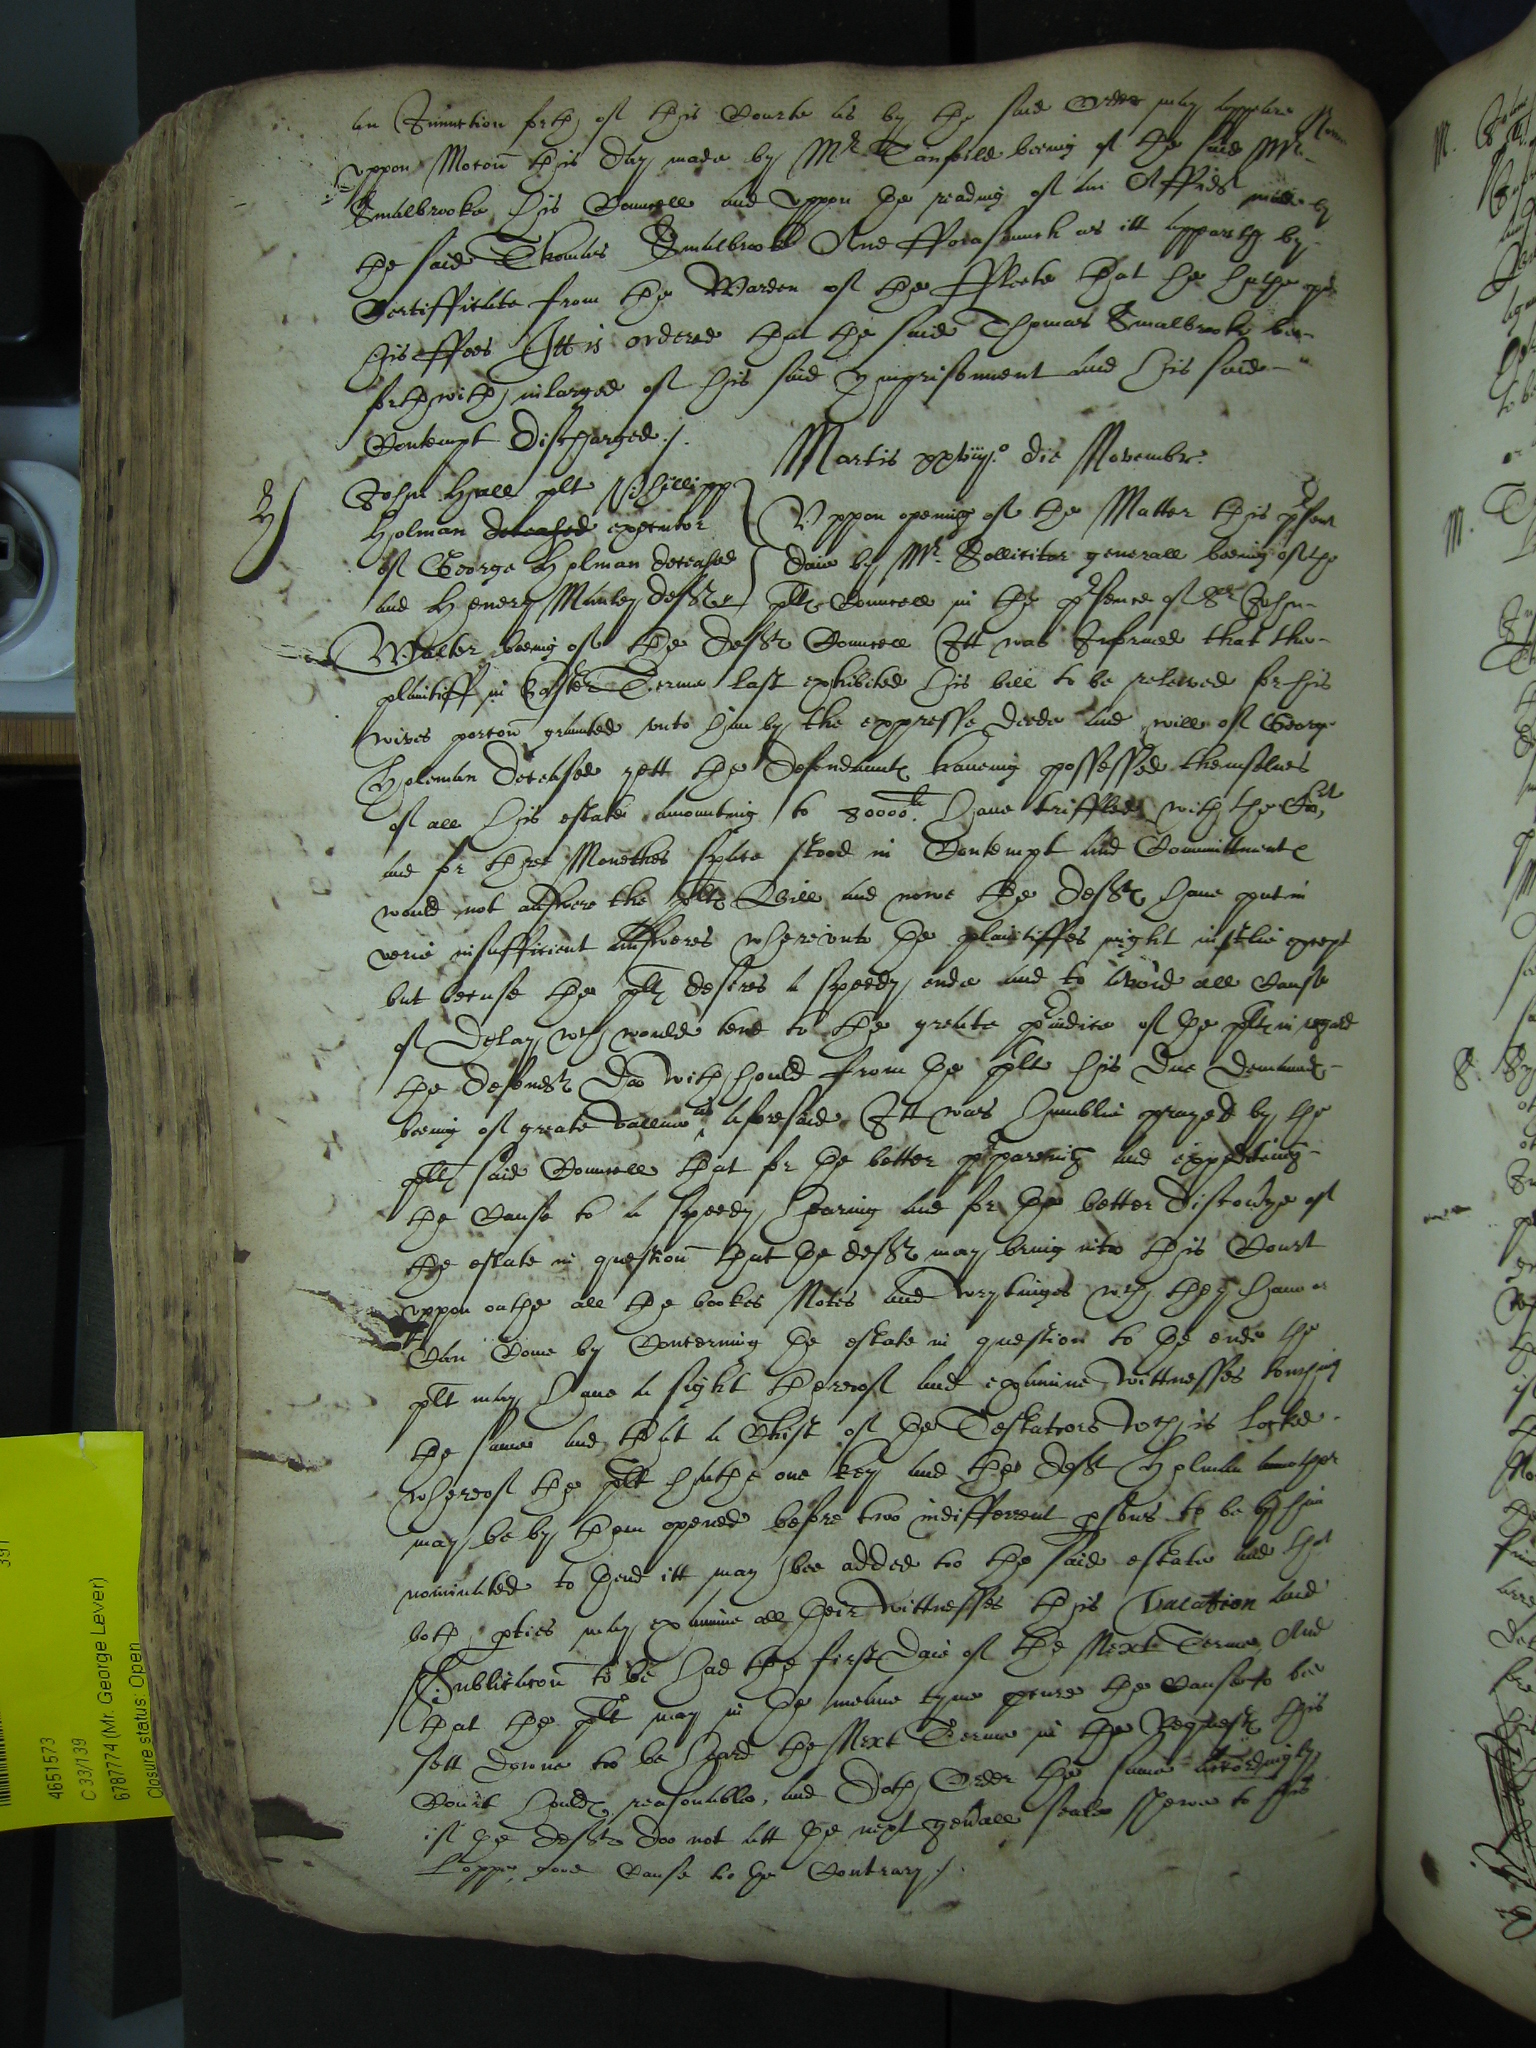 an Iniunction forth of this Courte as by the said Order may appeare Now
vppon Motōn this day made by Mr Tanfeild beeing of the said Mr
Smalbrooke his Councell and vppon the reading of an Affidt made by
the said Thomas Smalbrooke And fforasmuch as itt appeareth by
Certifficate from the Warden of the ffleete that he hathe
his ffees Itt is ordered that the said Thomas Smalbrooke bee
forthwith inlarged of his said ymprisonment and his said
Contempt discharged /.
Martis xxviij.o die Novembr.
John Hall plt Phillipp
Holman deceased executor
of George Holman deceased
and Henery Manley deftes
Vppon opening of the Matter this pñte
daie by Mr. Sollicitor generall beeing of the
pltes Councell in the pñsence of Sr John
Walter being of the deftes Councell Itt was Informed that the
plaintiff in Easter Terme last exhibited his bill to be releived for his
wives portōn graunted vnto him by the expresse deede and will of George
Holeman deceased yett the defendauntes haueing possessed themselues
of all his estate amounting to 30000li. haue triffled with the Cort
and for three Monethes space stood in Contempt and Committment
would not answere the pltes Bill and nowe the deftes haue put in
verie insufficient answeres wherevnto the plaintiffes might iustlie except
but because the plt desires a speedy ende and to avoid all Cause
of Delay wch would tend to the greate preiudice of the plt in regard
the defendtes doo withhould from the plt his due demandes
beeing of greate vallue as aforesaid Itt was humblie prayed by the
pltes said Councell that for the better prepareing and expediting
the Cause to a speedy hearing and for the better discouerye of
the estate in questiōn that the deftes may bring into this Court
vppon oathe all the bookes Notes and wrytinges wch they haue or
Can Come by Concerning the estate in question to the ende the
plt may haue a sight thereof and examine wittnesses touching
the same and that a Chist of the Testators wch is locked
whereof the plt hathe one key and the deft Holman another
may be by them opened before two indifferent psons to be by him
nominated to thend itt may bee added too the said estate and that
both pties may examine all their wittnesses this Vacation and
Publicacōn to be had the first daie of the Next Terme And
that the plt may in the meane tyme pcure the Cause to bee
sett downe too be heard the Next Terme in the Request this
Court houldes reasonable, and doth Order the same accordingly
if the deftes doo not att the next genall seale shewe to this
Court good Cause to the Contrary /.
4651573
C 33/139
6787774 (Mr. George Lever)
Closure status: Open
391